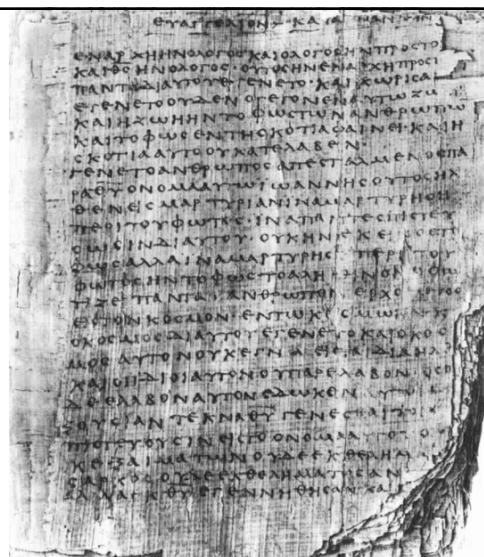 ΕΥΑΓΓΕΛΙΟΝ ΚΑΤΑ
ΕΝ ΑΡΧΗ ΗΝ Ο ΛΟΓΟΣ ΚΑΙ Ο ΛΟΓΟΣ ΗΝ ΠΡΟΣ ΤΟ
ΚΑΙ ΘΣ ΗΝ Ο ΛΟΓΟΣ · ΟΥΤΟΣ ΗΝ ΕΝ ΑΡΧΗ ΠΡΟΣ
ΠΑΝΤΑ ΔΙ ΑΥΤΟΥ ΕΓΕΝΕΤΟ · ΚΑΙ ΧΩΡΙΣ Α
ΕΓΕΝΕΤΟ ΟΥΔΕΝ Ο ΓΕΓΟΝΕΝ ΑΥΤΩ ΖΩ
ΚΑΙ Η ΖΩΗ ΗΝ ΤΟ ΦΩΣ ΤΩΝ ΑΝΘΡΩΠΩ
ΚΑΙ ΤΟ ΦΩΣ ΕΝ ΤΗ ΣΚΟΤΙΑ ΦΑΙΝΕΙ · ΚΑΙ Η
ΣΚΟΤΙΑ ΑΥΤΟ ΟΥ ΚΑΤΕΛΑΒΕΝ
ΓΕΝΕΤΟ ΑΝΘΡΩΠΟΣ ΑΠΕΣΤΑΛΜΕΝΟΣ ΠΑ
ΡΑ ΘΥ ΟΝΟΜΑ ΑΥΤΩ ΙΩΑΝΝΗΣ ΟΥΤΟΣ ΗΛ
ΘΕΝ ΕΙΣ ΜΑΡΤΥΡΙΑΝ ΙΝΑ ΜΑΡΤΥΡΗΣΗ
ΠΕΡΙ ΤΟΥ ΦΩΤΟΣ · ΙΝΑ ΠΑΝΤΕΣ ΠΙΣΤΕΥ
ΣΩΣΙΝ ΔΙ ΑΥΤΟΥ · ΟΥΚ ΗΝ ΕΚΕΙΝΟΣ ΤΟ
ΦΩΣ ΑΛΛΑ ΙΝΑ ΜΑΡΤΥΡΗΣΗ ΠΕΡΙ ΤΟΥ
ΦΩΤΟΣ · ΗΝ ΤΟ ΦΩΣ ΤΟ ΑΛΗΘΙΝΟΝ Ο ΦΩ
ΤΙΖΕΙ ΠΑΝΤΑ ΑΝΘΡΩΠΟΝ
ΕΙΣ ΤΟΝ ΚΟΣΜΟΝ · ΕΝ ΤΩ ΚΟΣΜΩ
Ο ΚΟΣΜΟΣ ΔΙ ΑΥΤΟΥ ΕΓΕΝΕΤΟ ΚΑΙ Ο ΚΟΣ
ΜΟΣ ΑΥΤΟΝ ΟΥΚ ΕΓΝΩ · ΕΙΣ ΤΑ ΙΔΙΑ ΗΛ
ΚΑΙ ΟΙ ΙΔΙΟΙ ΑΥΤΟΝ ΟΥ ΠΑΡΕΛΑΒΟΝ
ΔΕ ΕΛΑΒΟΝ ΑΥΤΟΝ ΕΔΩΚΕΝ
ΞΟΥΣΙΑΝ ΤΕΚΝΑ ΘΥ ΓΕΝΕΣΘΑΙ
ΠΙΣΤΕΥΟΥΣΙΝ ΕΙΣ ΤΟ ΟΝΟΜΑ ΑΥΤΟΥ
Κ ΕΞ ΑΙΜΑΤΩΝ ΟΥΔΕ ΕΚ ΘΕΛΗΜΑ
ΣΑΡΚΟΣ ΟΥΔΕ ΕΚ ΘΕΛΗΜΑΤΟΣ ΑΝ
ΑΛΛΑ ΕΚ ΘΥ ΕΓΕΝΝΗΘΗΣΑΝ ΚΑΙ